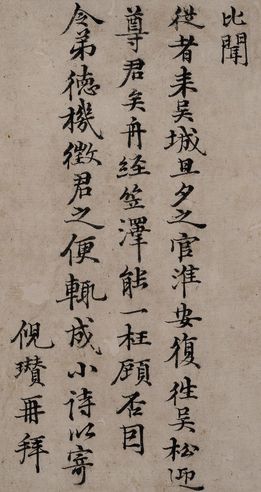 比聞
從者来吴城旦夕之官淮安復往吴松迎
尊君矣舟經笠澤能一枉顧否因
令弟徳機徵君之便輒成小詩以寄
倪瓚再拜